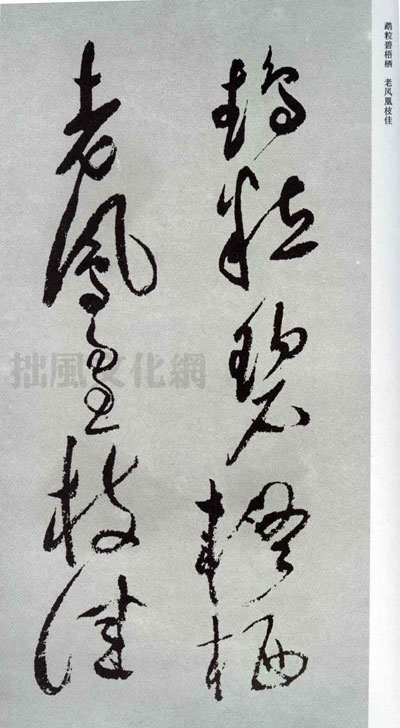 鹉粒碧梧栖 老凤凰枝佳
鵡粒碧梧栖
老鳳凰枝佳
拙風文化網